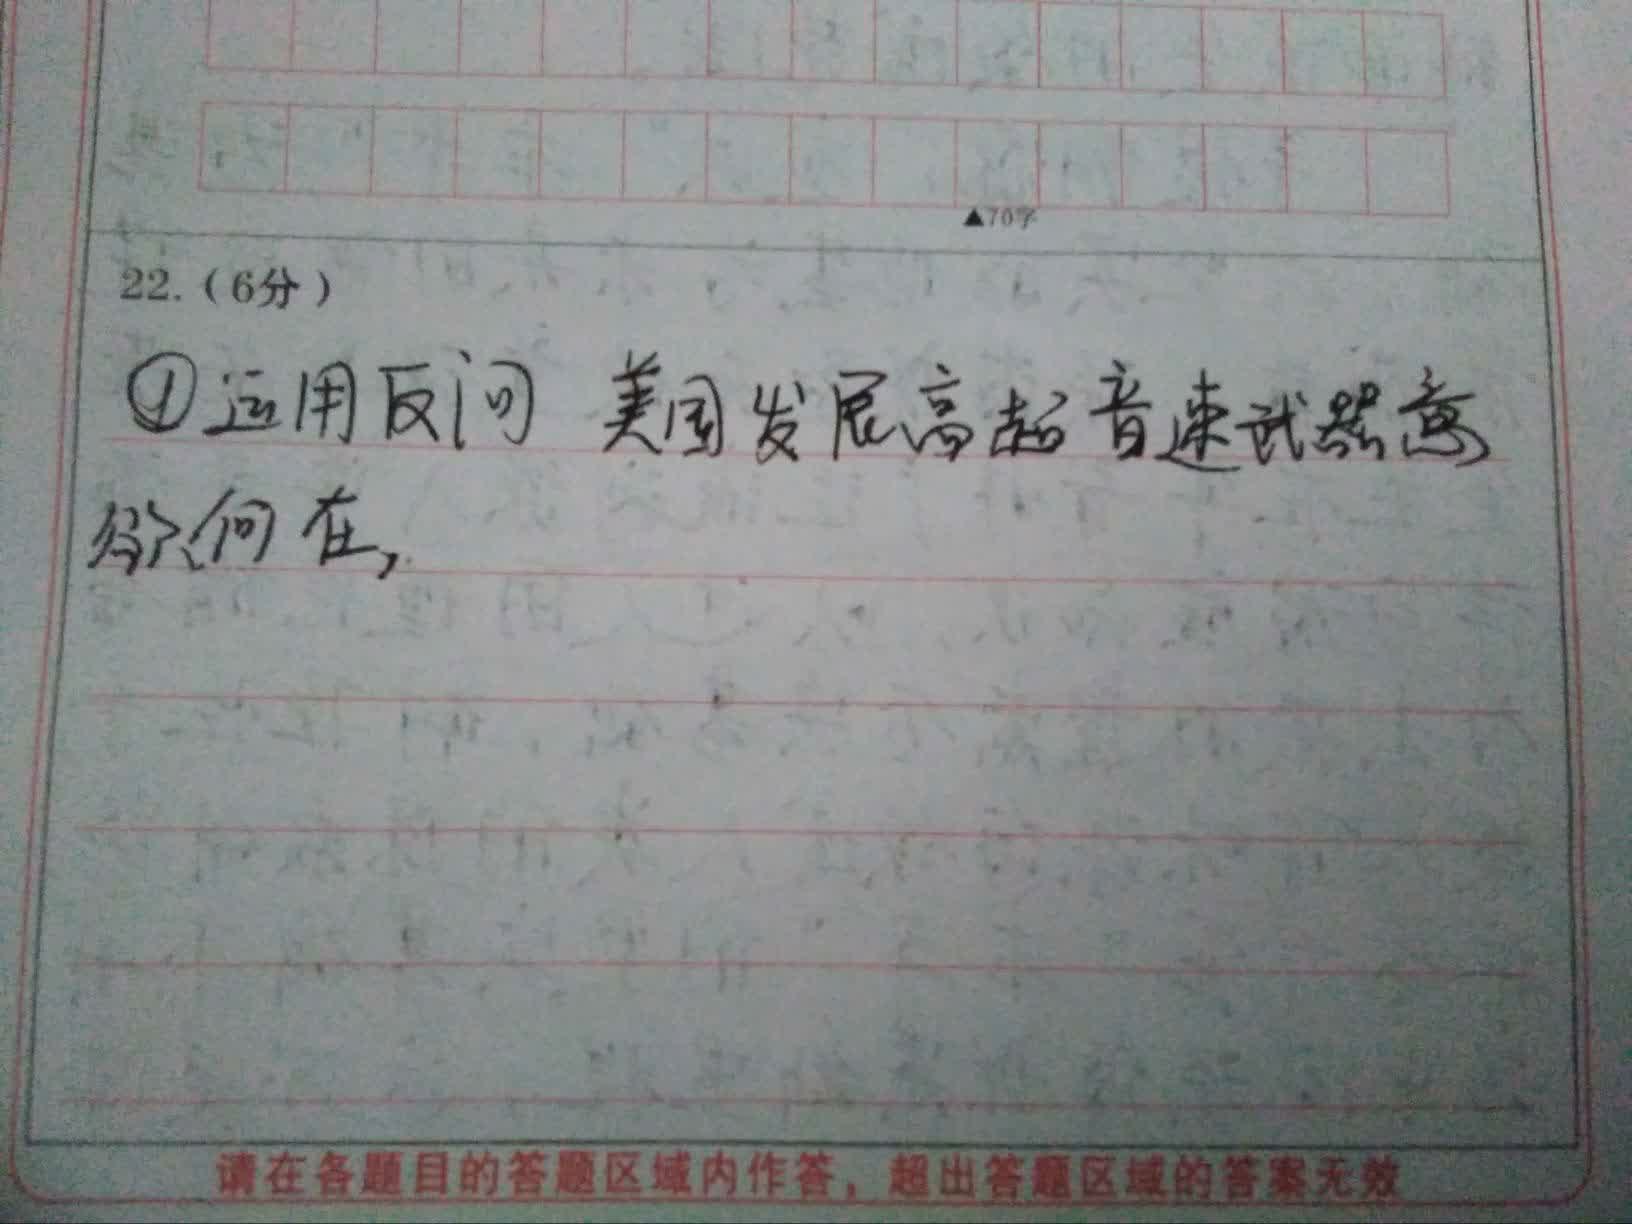 ▲70字
22.(6分)
①运用反问 美国发展高超音速武器意
欲何在,
请在各题目的答题区域内作答，超出答题区域的答案无效